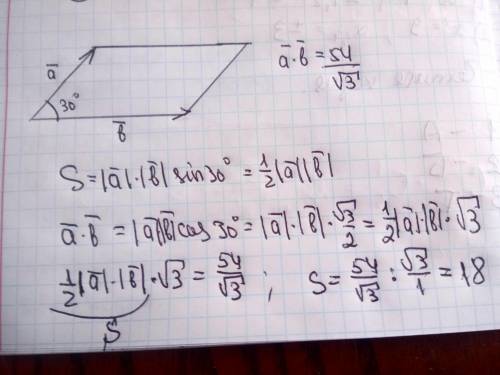 a̅
30°
b̅
a̅·b̅ = 54/√3
S = |a̅|·|b̅| sin30° = 1/2|a̅||b̅|
a̅·b̅ = |a̅||b̅|cos30° = |a̅|·|b̅|·√3/2 = 1/2|a̅|·|b̅|·√3
1/2|a̅|·|b̅|·√3 = 54/√3 ; S = 54/√3 : √3/1 = 18
S